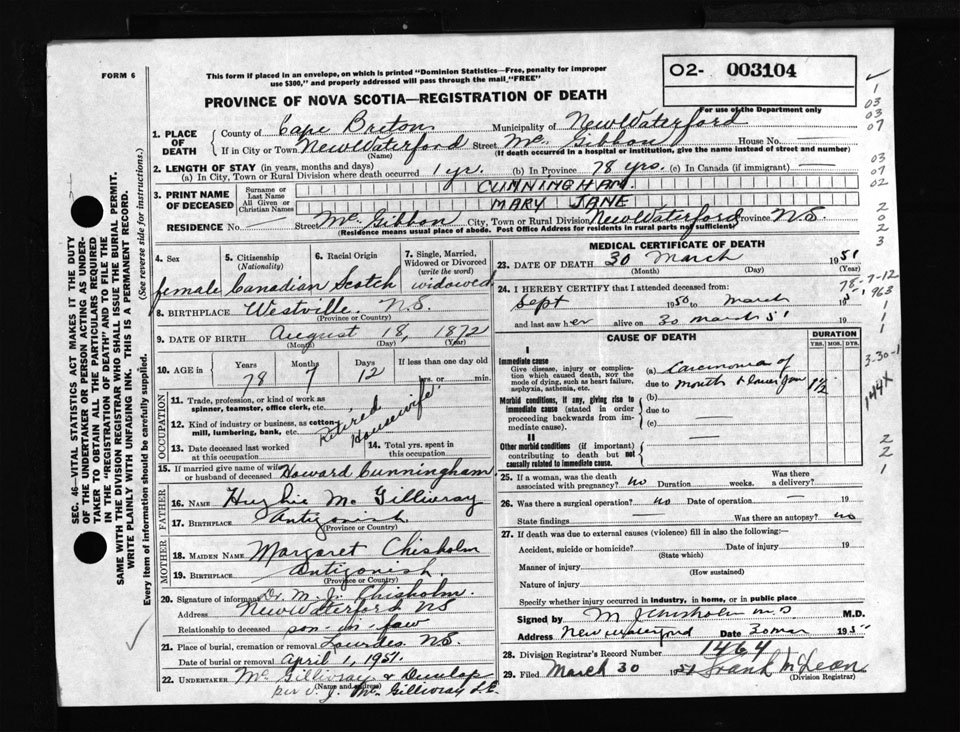 FORM 6
This form if placed in an envelope, on which is printed "Dominion Statistics—Free, penalty for improper
use $300," and properly addressed will pass through the mail "FREE"
PROVINCE OF NOVA SCOTIA—REGISTRATION OF DEATH
02- 003104
For use of the Department only
1. PLACE OF DEATH
County of Cape Breton Municipality of New Waterford
If in City or Town New Waterford Street Mc Gibbon House No. —
(Name) (If death occurred in a hospital or institution, give the name instead of street and number)
2. LENGTH OF STAY (in years, months and days)
(a) In City, Town or Rural Division where death occurred 1 yr. (b) In Province 78 yrs. (c) In Canada (if immigrant) —
3. PRINT NAME OF DECEASED
Surname or Last Name CUNNINGHAM.
All Given or Christian Names MARY JANE
RESIDENCE No. — Street Mc Gibbon City, Town or Rural Division New Waterford Province N.S.
(Residence means usual place of abode. Post Office Address for residents in rural parts not sufficient)
4. Sex
female
5. Citizenship (Nationality)
Canadian
6. Racial Origin
Scotch
7. Single, Married, Widowed or Divorced (write the word)
widowed
8. BIRTHPLACE Westville, N.S.
(Province or Country)
9. DATE OF BIRTH August 18, 1872
(Month) (Day) (Year)
10. AGE in
Years Months Days If less than one day old
78 7 12 hrs. or min.
OCCUPATION
11. Trade, profession, or kind of work as
spinner, teamster, office clerk, etc.
12. Kind of industry or business, as cotton-
mill, lumbering, bank, etc.
Retired Housewife
13. Date deceased last worked
at this occupation
14. Total yrs. spent in
this occupation
15. If married give name of wife
or husband of deceased Howard Cunningham.
FATHER
16. NAME Hughie McGillivray
17. BIRTHPLACE Antigonish
(Province or Country)
MOTHER
18. MAIDEN NAME Margaret Chisholm
19. BIRTHPLACE Antigonish.
(Province or Country)
20. Signature of informant Dr. M. J. Chisholm.
Address New Waterford NS
Relationship to deceased son-in-law
21. Place of burial, cremation or removal Lourdes N.S.
Date of burial or removal April 1, 1951.
22. UNDERTAKER McGillivray & Dunlap
(Name and address)
per J. McGillivray
MEDICAL CERTIFICATE OF DEATH
23. DATE OF DEATH 30 March 1951
(Month) (Day) (Year)
24. I HEREBY CERTIFY that I attended deceased from:
Sept 1950 to March 195
and last saw her alive on 30 March 51 19
CAUSE OF DEATH
DURATION
YRS. MOS. DYS.
I
Immediate cause
Give disease, injury or complica-
tion which caused death, not the
mode of dying, such as heart failure,
asphyxia, asthenia, etc.
(a) Carcinoma of
due to mouth & lower jaw 1½
Morbid conditions, if any, giving rise to
immediate cause (stated in order
proceeding backwards from im-
mediate cause).
(b)
due to —
(c)
II
Other morbid conditions (if important)
contributing to death but not
causally related to immediate cause.
—
25. If a woman, was the death
associated with pregnancy? no Duration weeks. Was there
a delivery?
26. Was there a surgical operation? no Date of operation — 19
State findings — Was there an autopsy? no
27. If death was due to external causes (violence) fill in also the following:—
Accident, suicide or homicide? Date of injury 19
(State which)
Manner of injury
(How sustained)
Nature of injury
Specify whether injury occurred in industry, in home, or in public place
Signed by M J Chisholm M.D M.D.
Address New Waterford Date 30 Mar 195
28. Division Registrar's Record Number 1464
29. Filed March 30 1951 Frank McLean
(Division Registrar)
SEC. 46—VITAL STATISTICS ACT MAKES IT THE DUTY
OF THE UNDERTAKER OR PERSON ACTING AS UNDER-
TAKER TO OBTAIN ALL THE PARTICULARS REQUIRED
IN THE "REGISTRATION OF DEATH" AND TO FILE THE
SAME WITH THE DIVISION REGISTRAR WHO SHALL ISSUE THE BURIAL PERMIT.
WRITE PLAINLY WITH UNFADING INK. THIS IS A PERMANENT RECORD.
Every item of information should be carefully supplied. (See reverse side for instructions.)
1
03
03
07
03
07
02
2
0
2
3
78-7-12
1963
1
1
1
3-30-1
144X
2
2
1